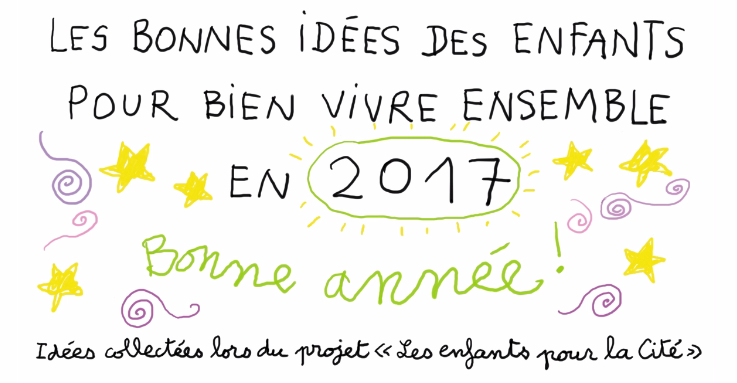 LES BONNES IDÉES DES ENFANTS
POUR BIEN VIVRE ENSEMBLE
EN 2017
Bonne année !
Idées collectées lors du projet « Les enfants pour la Cité »